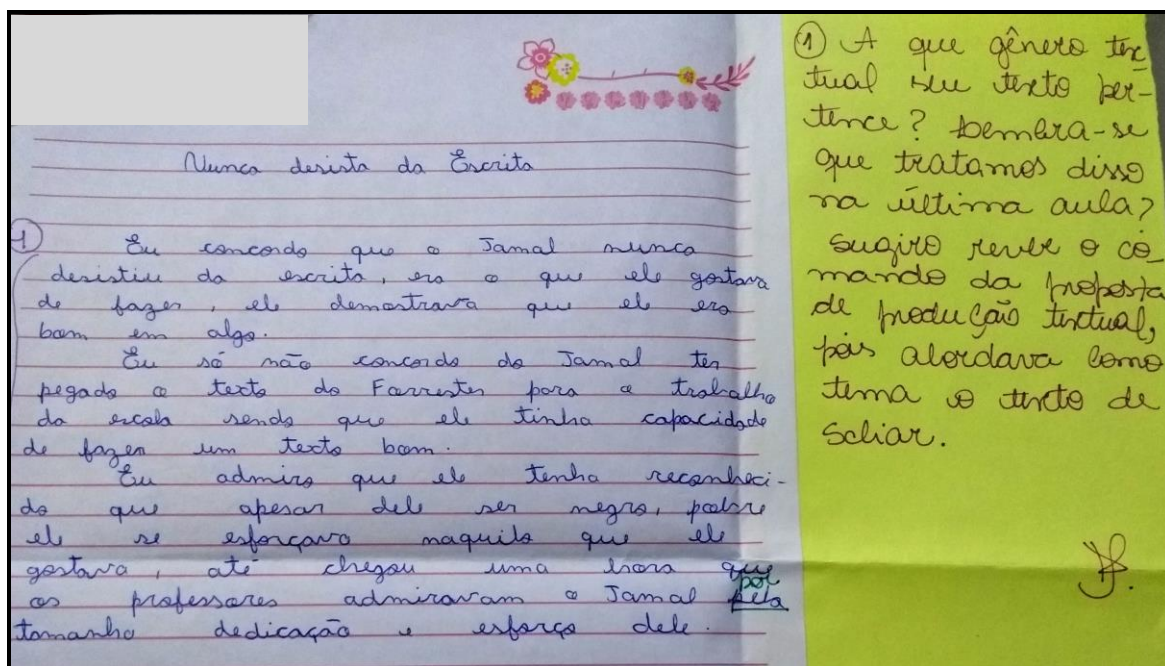 Nunca desista da Escrita
1
Eu concordo que o Jamal nunca
desistiu da escrita, era o que ele gostava
de fazer, ele demostrava que ele era
bom em algo.
Eu só não concordo do Jamal ter
pegado o texto do Forrester para o trabalho
da escola sendo que ele tinha capacidade
de fazer um texto bom.
Eu admiro que ele tenha reconheci-
do que apesar dele ser negro, pobre
ele se esforçava naquilo que ele
gostava, até chegou uma hora que
os professores admiravam o Jamal pela
por
tamanho dedicação e esforço dele.
1 A que gênero tex
tual seu texto per-
tence? Lembra-se
que tratamos disso
na última aula?
Sugiro rever o co_
mando da proposta
de produção textual,
pois abordava como
tema o texto de
Scliar.